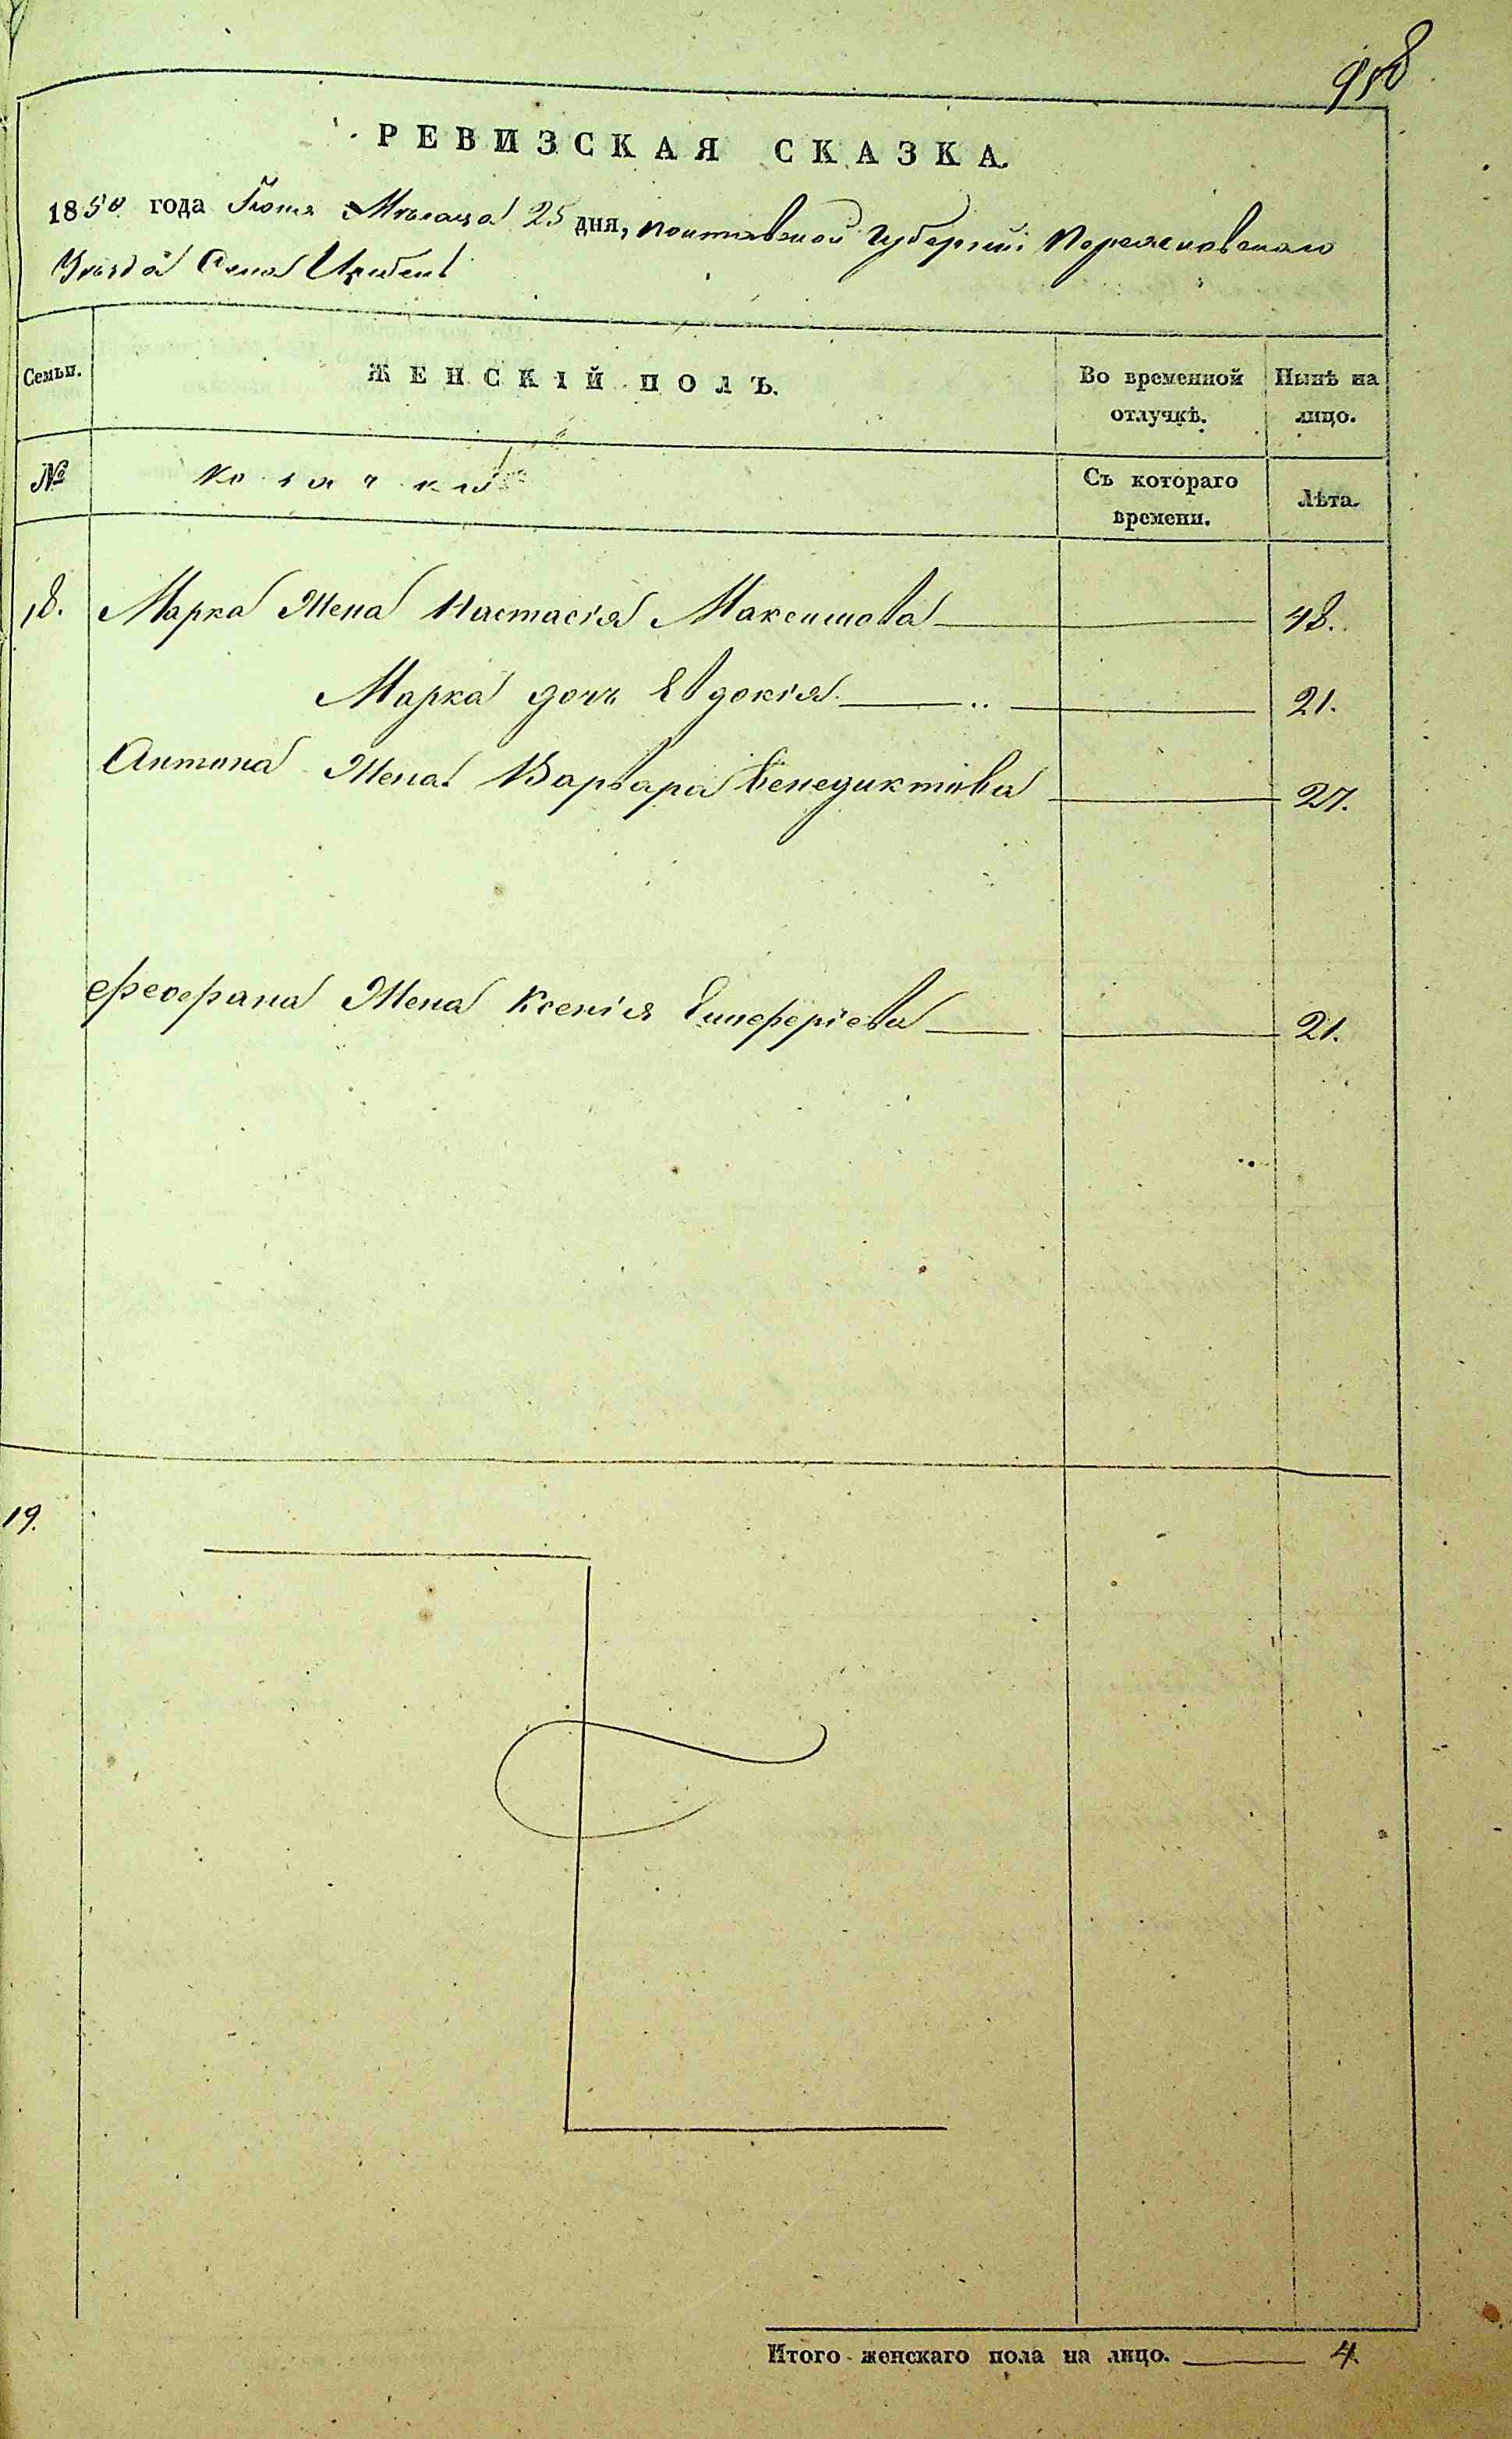 958
РЕВИЗСКАЯ СКАЗКА.
1850 года Іюня Мѣсяца 25 дня, Полтавской Губерніи Переяславскаго
Уѣзда Села
Семьи. ЖЕНСКІЙ ПОЛЪ. Во временной отлучкѣ. Нынѣ на лицо.
№ Козачки Съ котораго времени. Лѣта.
18. Марка Жена Настасія Максимова 48.
Марка дочь Евдокія 21.
Антона Жена Варвара Венедиктова 27.
Феофана Жена Ксенія Елиферіева 21.
19.
Итого женскаго пола на лицо. 4.